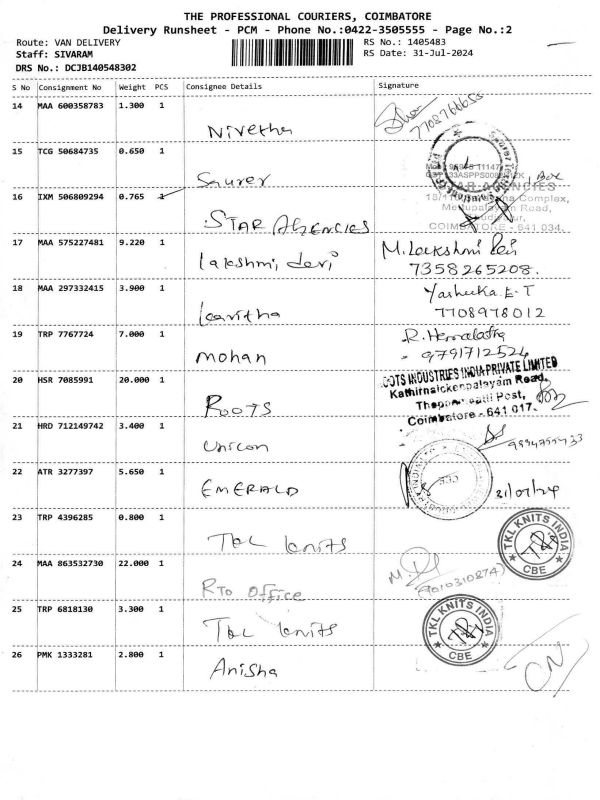 THE PROFESSIONAL COURIERS, COIMBATORE
Delivery Runsheet - PCM - Phone No.:0422-3505555 - Page No.:2
Route: VAN DELIVERY RS No.: 1405483
Staff: SIVARAM RS Date: 31-Jul-2024
DRS No.: DCJB140548302
S No Consignment No Weight PCS Consignee Details Signature
14 MAA 600358783 1.300 1 Nivetha
15 TCG 50684735 0.650 1 Saurer
1 Box
16 IXM 506809294 0.765 1 STAR AGENCIES
STAR AGENCIES
Complex,
Road,
COIMBATORE - 641 034.
17 MAA 575227481 9.220 1 lakshmi devi
7358265208.
18 MAA 297332415 3.900 1 kavitha Yasheeka.E.T
7708978012
19 TRP 7767724 7.000 1 mohan R.Hemalatha
9791712524
20 HSR 7085991 20.000 1 ROOTS
ROOTS INDUSTRIES INDIA PRIVATE LIMITED
Kathirnaickenpalayam Road,
Post,
Coimbatore - 641 017.
21 HRD 712149742 3.400 1 unicon
22 ATR 3277397 5.650 1 EMERALD 31/07/24
23 TRP 4396285 0.800 1 TKL knits
TKL KNITS INDIA
CBE
24 MAA 863532730 22.000 1 RTO office
25 TRP 6818130 3.300 1 TKL knits
TKL KNITS INDIA
CBE
26 PMK 1333281 2.800 1 Anisha